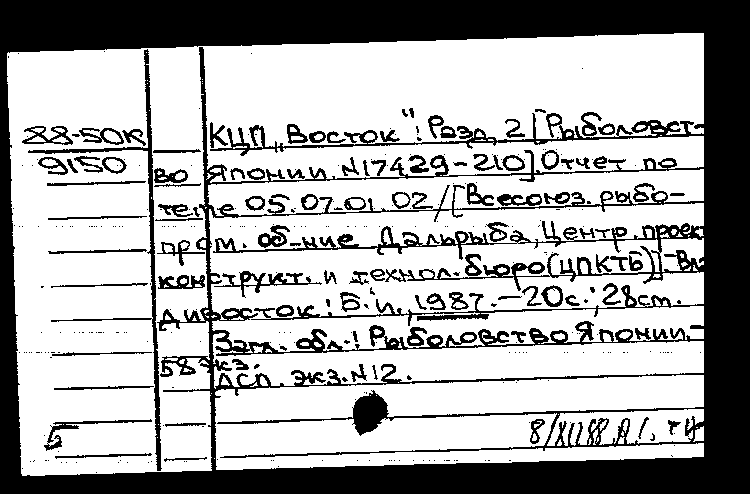 88-50К
9150
КЦП „Восток": Разд. 2 [Рыболовст-
во Японии. N17429-210]. Отчет по
теме 05.07.01.02/[Всесоюз. рыбо-
пром. об-ние Дальрыба, Центр. проект
конструкт. и технол. бюро(ЦПКТБ)].-Вла
дивосток: Б. и., 1987.-20с.; 28см.
Загл. обл.: Рыболовство Японии.-
58 экз.
ДСП. экз. N12.
5
8/XII88